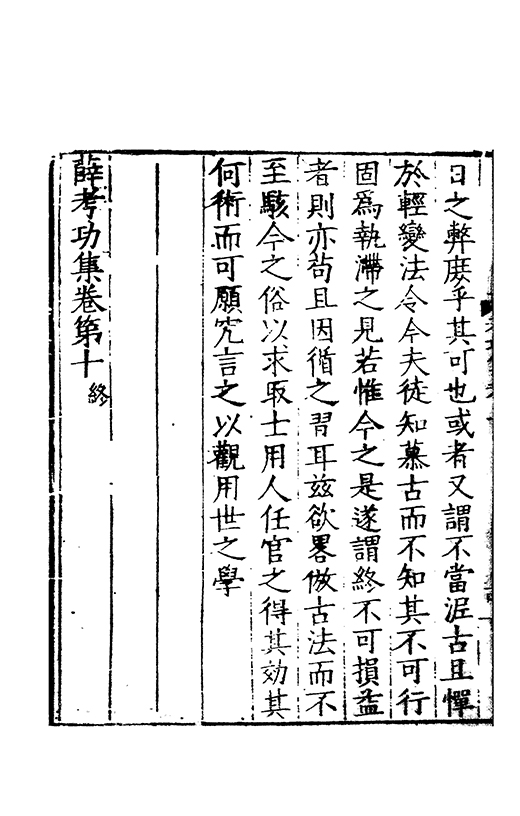 日之弊庻乎其可也或者又謂不當泥古且憚
於輕變法令今夫徒知慕古而不知其不可行
固爲執滯之見若惟今之是遂謂終不可損益
者則亦苟且因循之習耳兹欲畧倣古法而不
至駭今之俗以求取士用人任官之得其効其
何術而可願究言之以觀用世之學
薛考功集卷第十終